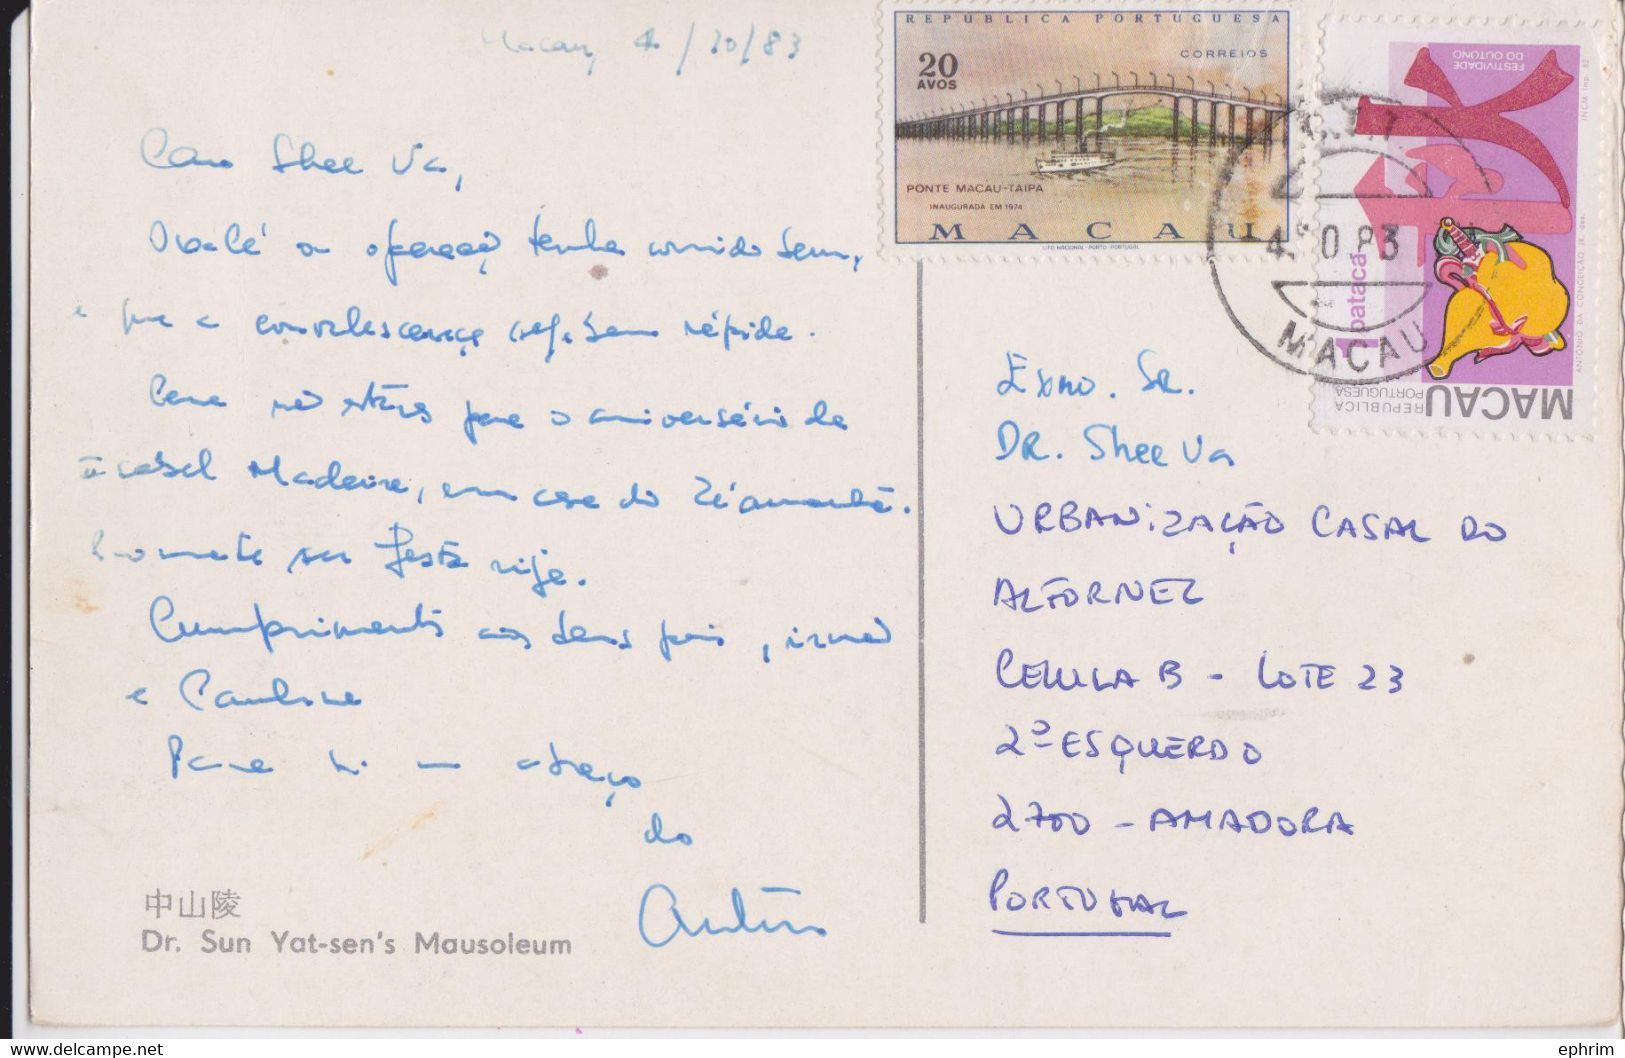 Macau, 4/10/83
Caro Shee Va,
Oxalá a operação tenha corrido bem,
e que a convalescença seja bem rápida.
Cena nos três para o aniversário de
casal Madeira, em casa do
Promete ser festa rija.
Cumprimentos aos teus pais, irmã
e Caroline
Para ti um abraço
do
António
中山陵
Dr. Sun Yat-sen's Mausoleum
REPÚBLICA PORTUGUESA
CORREIOS
20
AVOS
PONTE MACAU-TAIPA
INAUGURADA EM 1974
MACAU
LITO NACIONAL - PORTO - PORTUGAL
FESTIVIDADE
DO OUTONO
INCM Imp. 82
ANTÓNIO DA CONCEIÇÃO JR. des.
1 pataca
REPÚBLICA
PORTUGUESA
MACAU
4.10.83
MACAU
Exmo. Sr.
DR. Shee Va
URBANIZAÇÃO CASAL DO
ALFORNEL
CELULA B - LOTE 23
2º ESQUERDO
2700 - AMADORA
PORTUGAL
ephrim
delcampe.net